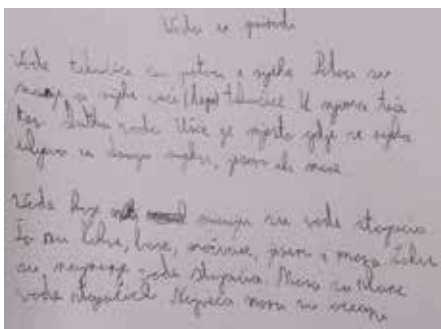 Vode u prirodi
Vode tekućice su potoci i rijeke. Potoci su
manje a rijeke veće (duge) tekućice. U njima teče
slatka voda. Ušće je mjesto gdje se rijeka
ulijeva u drugu rijeku, jezero ili more.
Vode koje miruju su vode stajaćice.
To su lokve, bare, močvare, jezera i mora. Lokve
su najmanje vode stajaćice. Mora su slane
vode stajaćice. Najveća mora su oceani.